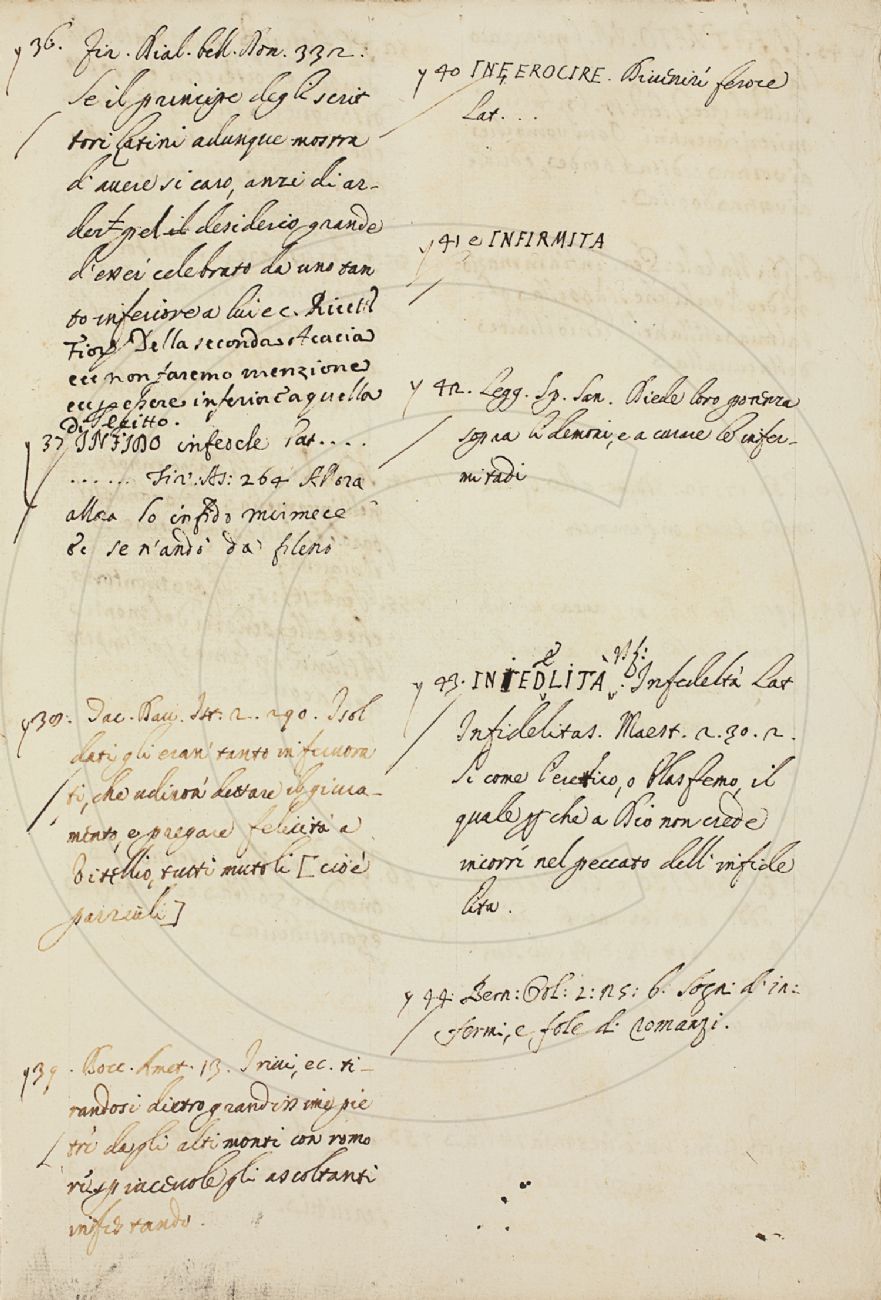 y 36. Fir. Dial. bell. Don. 332.
Se il principe degli scrit
tori Latini adunque mostra
d'avere sì caro, anzi di ar-
pel il desiderio grande
d'esser celebrato da uno tan
to inferiore a lui ec. Ricett
Fior. Della seconda Acacia
ec. non faremo menzione
ec. p essere inferiore a quella
di Egitto.
y 37 INFIDO infedele Lat. . . .
. . . . . . Fir. As: 264 Allora
allora lo infido mirmece
se n'andò da fileno
y 38. Dav. Ist: 2. 290. I sol
dati gli eran' tanto infervora
ti, che udiron' dettare il giura-
mento, e pregare felicità a
Vitellio, tutti mutoli [cioè
]
y 39. Bocc. Amet. 13. I rivi, ec. ti-
randosi dietro grandissime pie
tre dagli alti monti con romo
re spiacevole gli ascoltanti
infestando.
y 40 INFEROCIRE. Divenire feroce
Lat. . . .
y 41 e INFIRMITA
y 42. Legg. Sp. San. Diede loro potenza
sopra li demoni, e a curare le infer-
mitadi
y 43. INFEDLITÀ. Infedeltà Lat
e
Infidelitas. Maest. 2. 30. 2.
Si come l'eretico, o blasfemo, il
quale p che a Dio non crede
incorre nel peccato dell'infide
lita.
y 44. Bern: Orl: 2: 25: 6. Sogni d'in:
fermi, e fole di romanzi.